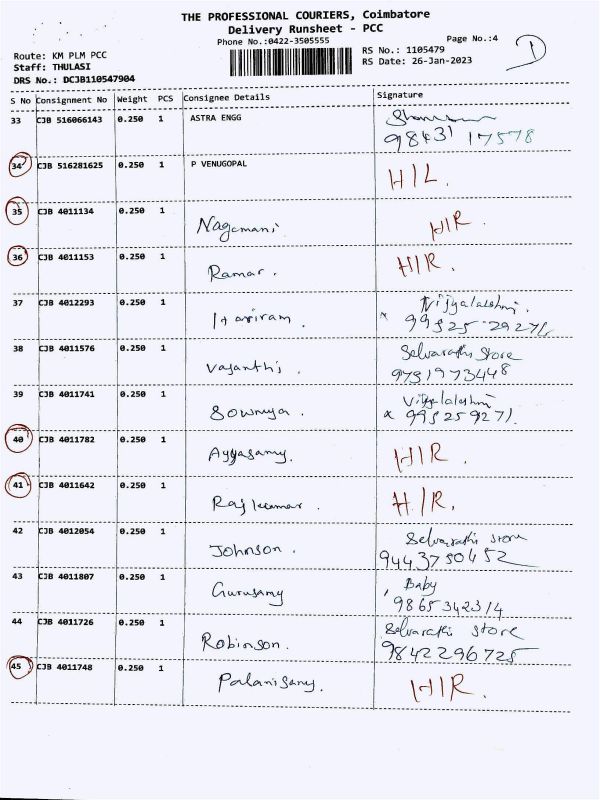 THE PROFESSIONAL COURIERS, Coimbatore
Delivery Runsheet - PCC
Phone No.:0422-3505555
Page No.:4
Route: KM PLM PCC
Staff: THULASI
DRS No.: DCJB110547904
RS No.: 1105479
RS Date: 26-Jan-2023
S No Consignment No Weight PCS Consignee Details Signature
33 CJB 516066143 0.250 1 ASTRA ENGG
98431 17578
34 CJB 516281625 0.250 1 P VENUGOPAL H/L.
35 CJB 4011134 0.250 1 Nagamani H/R.
36 CJB 4011153 0.250 1 Ramar. H/R.
37 CJB 4012293 0.250 1 Hariram. Vijyalalshmi.
x 99525 29271
38 CJB 4011576 0.250 1 Vasanthi. Selvarathi Store
9791973448
39 CJB 4011741 0.250 1 Sowmya. Vijyalalshmi
x 995259271.
40 CJB 4011782 0.250 1 Ayyasamy. H/R.
41 CJB 4011642 0.250 1 Rajkumar. H/R.
42 CJB 4012054 0.250 1 Johnson. Selvarathi store
9443750452
43 CJB 4011807 0.250 1 Gurusamy Baby
9865342314
44 CJB 4011726 0.250 1 Robinson. Selvarathi store
9842296725
45 CJB 4011748 0.250 1 Palanisamy. H/R.